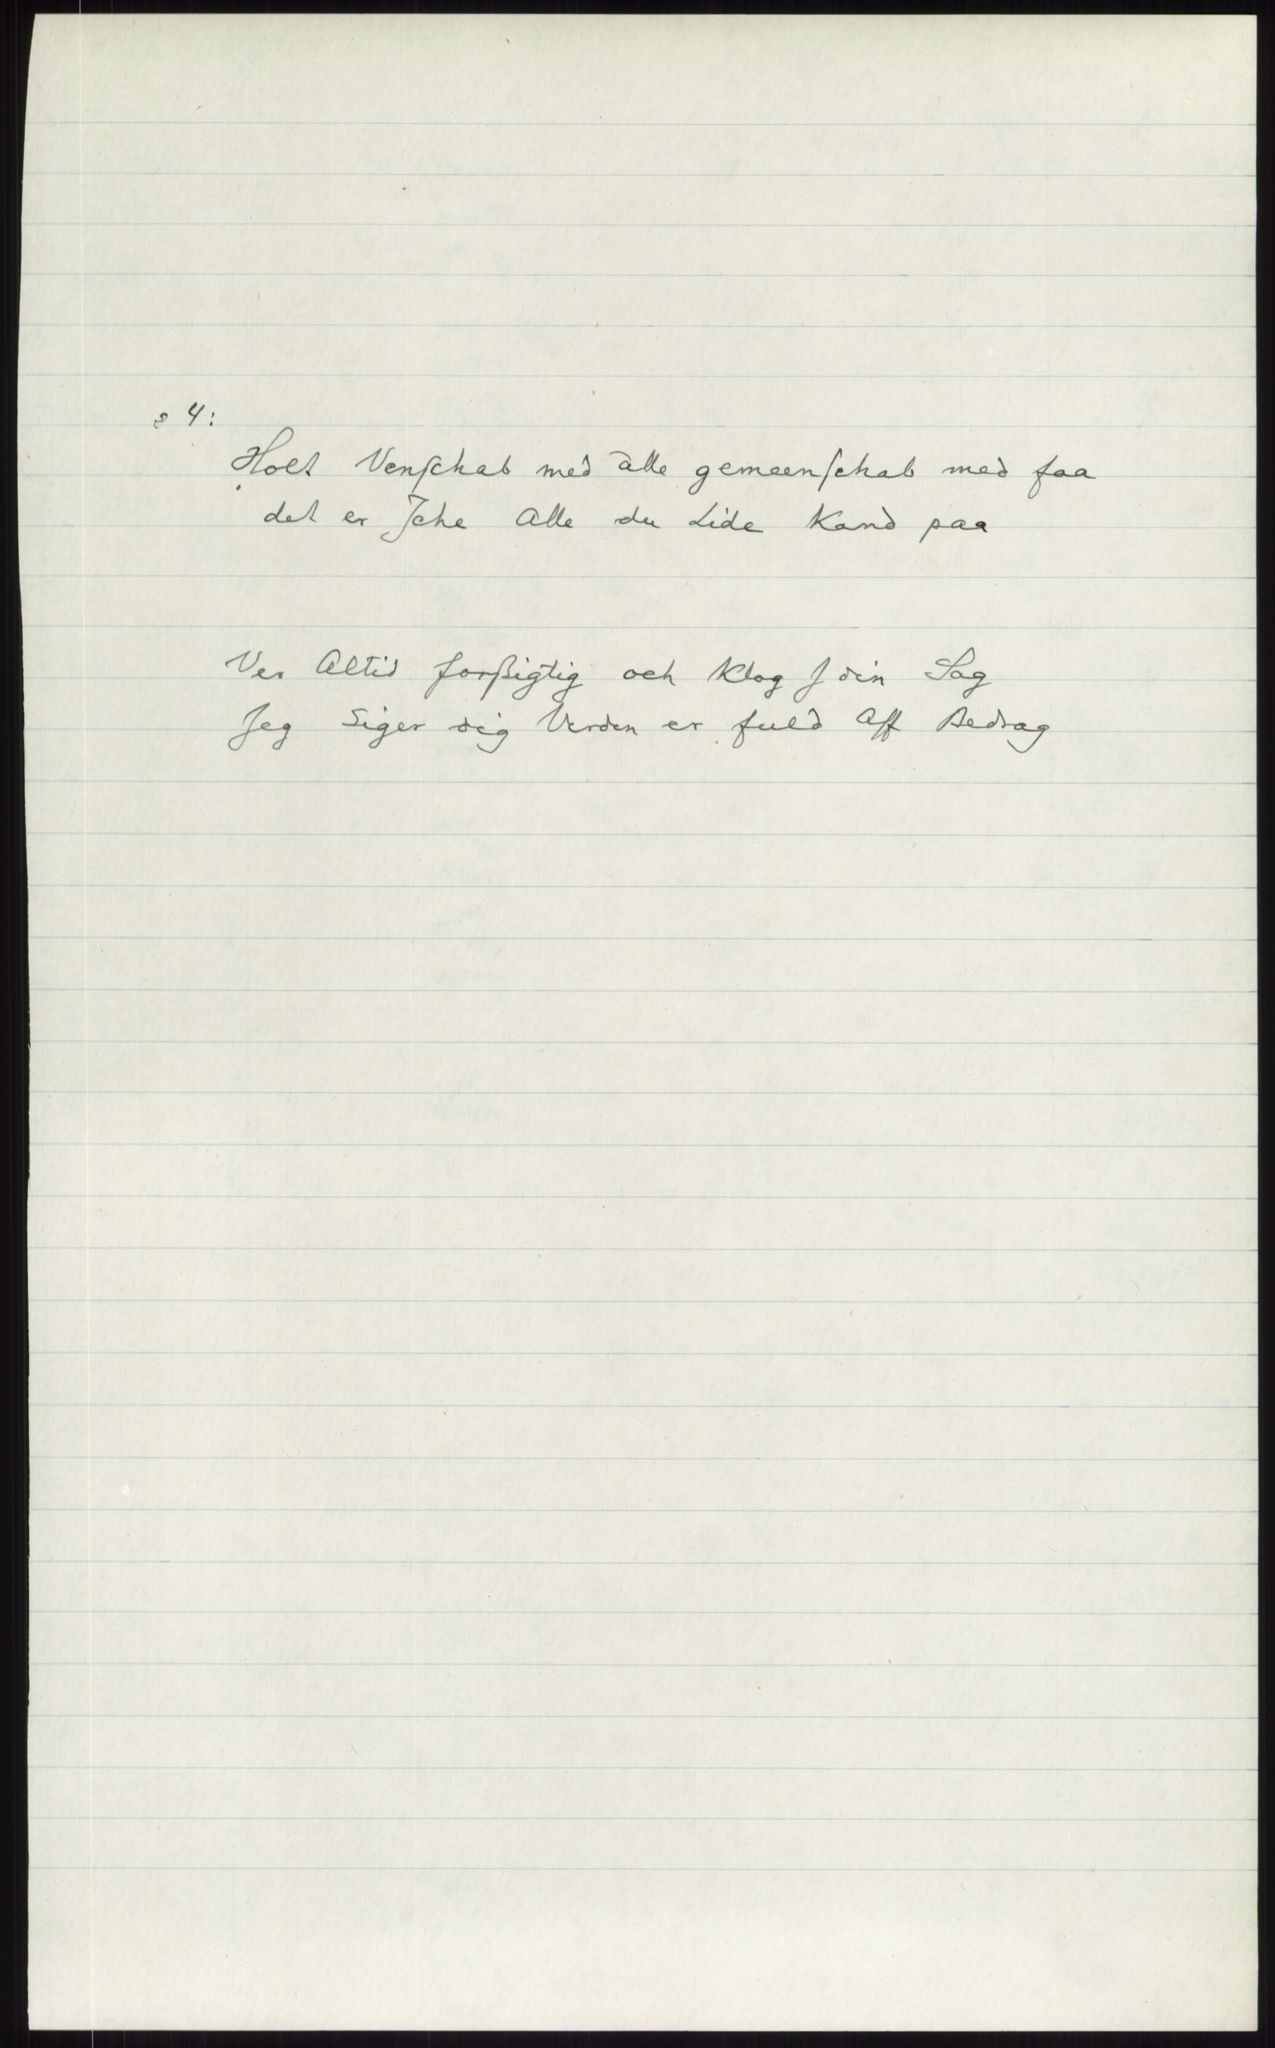 s 4:
Holt Venſchab med alle gemeenſchab med faa
det er Jche Alle du Lide Kand paa
Ver Altid forßigtig och Klog J din Sag
Jeg Siger dig Verden er fuld Aff Bedrag